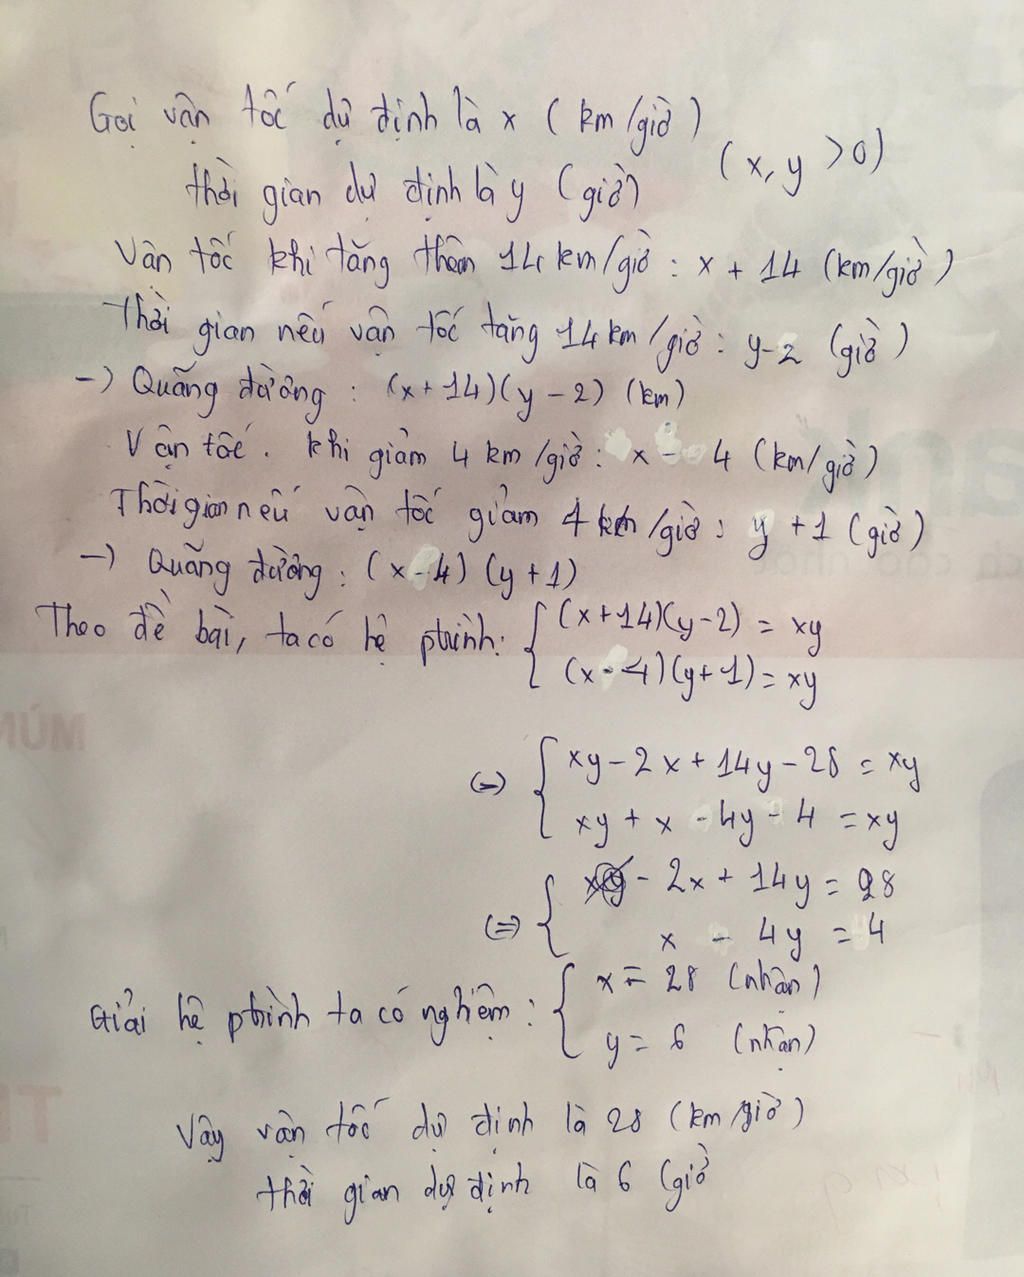 Gọi vận tốc dự định là x (km/giờ)
(x, y > 0)
thời gian dự định là y (giờ)
Vận tốc khi tăng thêm 14 km/giờ : x + 14 (km/giờ)
Thời gian nếu vận tốc tăng 14 km/giờ : y - 2 (giờ)
-> Quãng đường : (x + 14)(y - 2) (km)
Vận tốc. khi giảm 4 km/giờ : x - 4 (km/giờ)
Thời gian nếu vận tốc giảm 4 km/giờ : y + 1 (giờ)
-> Quãng đường : (x - 4) (y + 1)
Theo đề bài, ta có hệ ptrình: { (x+14)(y-2) = xy
(x - 4)(y+1) = xy
(=) { xy - 2x + 14y - 28 = xy
xy + x - 4y - 4 = xy
(=) { - 2x + 14y = 28
x - 4y = 4
Giải hệ ptrình ta có nghiệm : { x = 28 (nhận)
y = 6 (nhận)
Vậy vận tốc dự định là 28 (km/giờ)
thời gian dự định là 6 (giờ